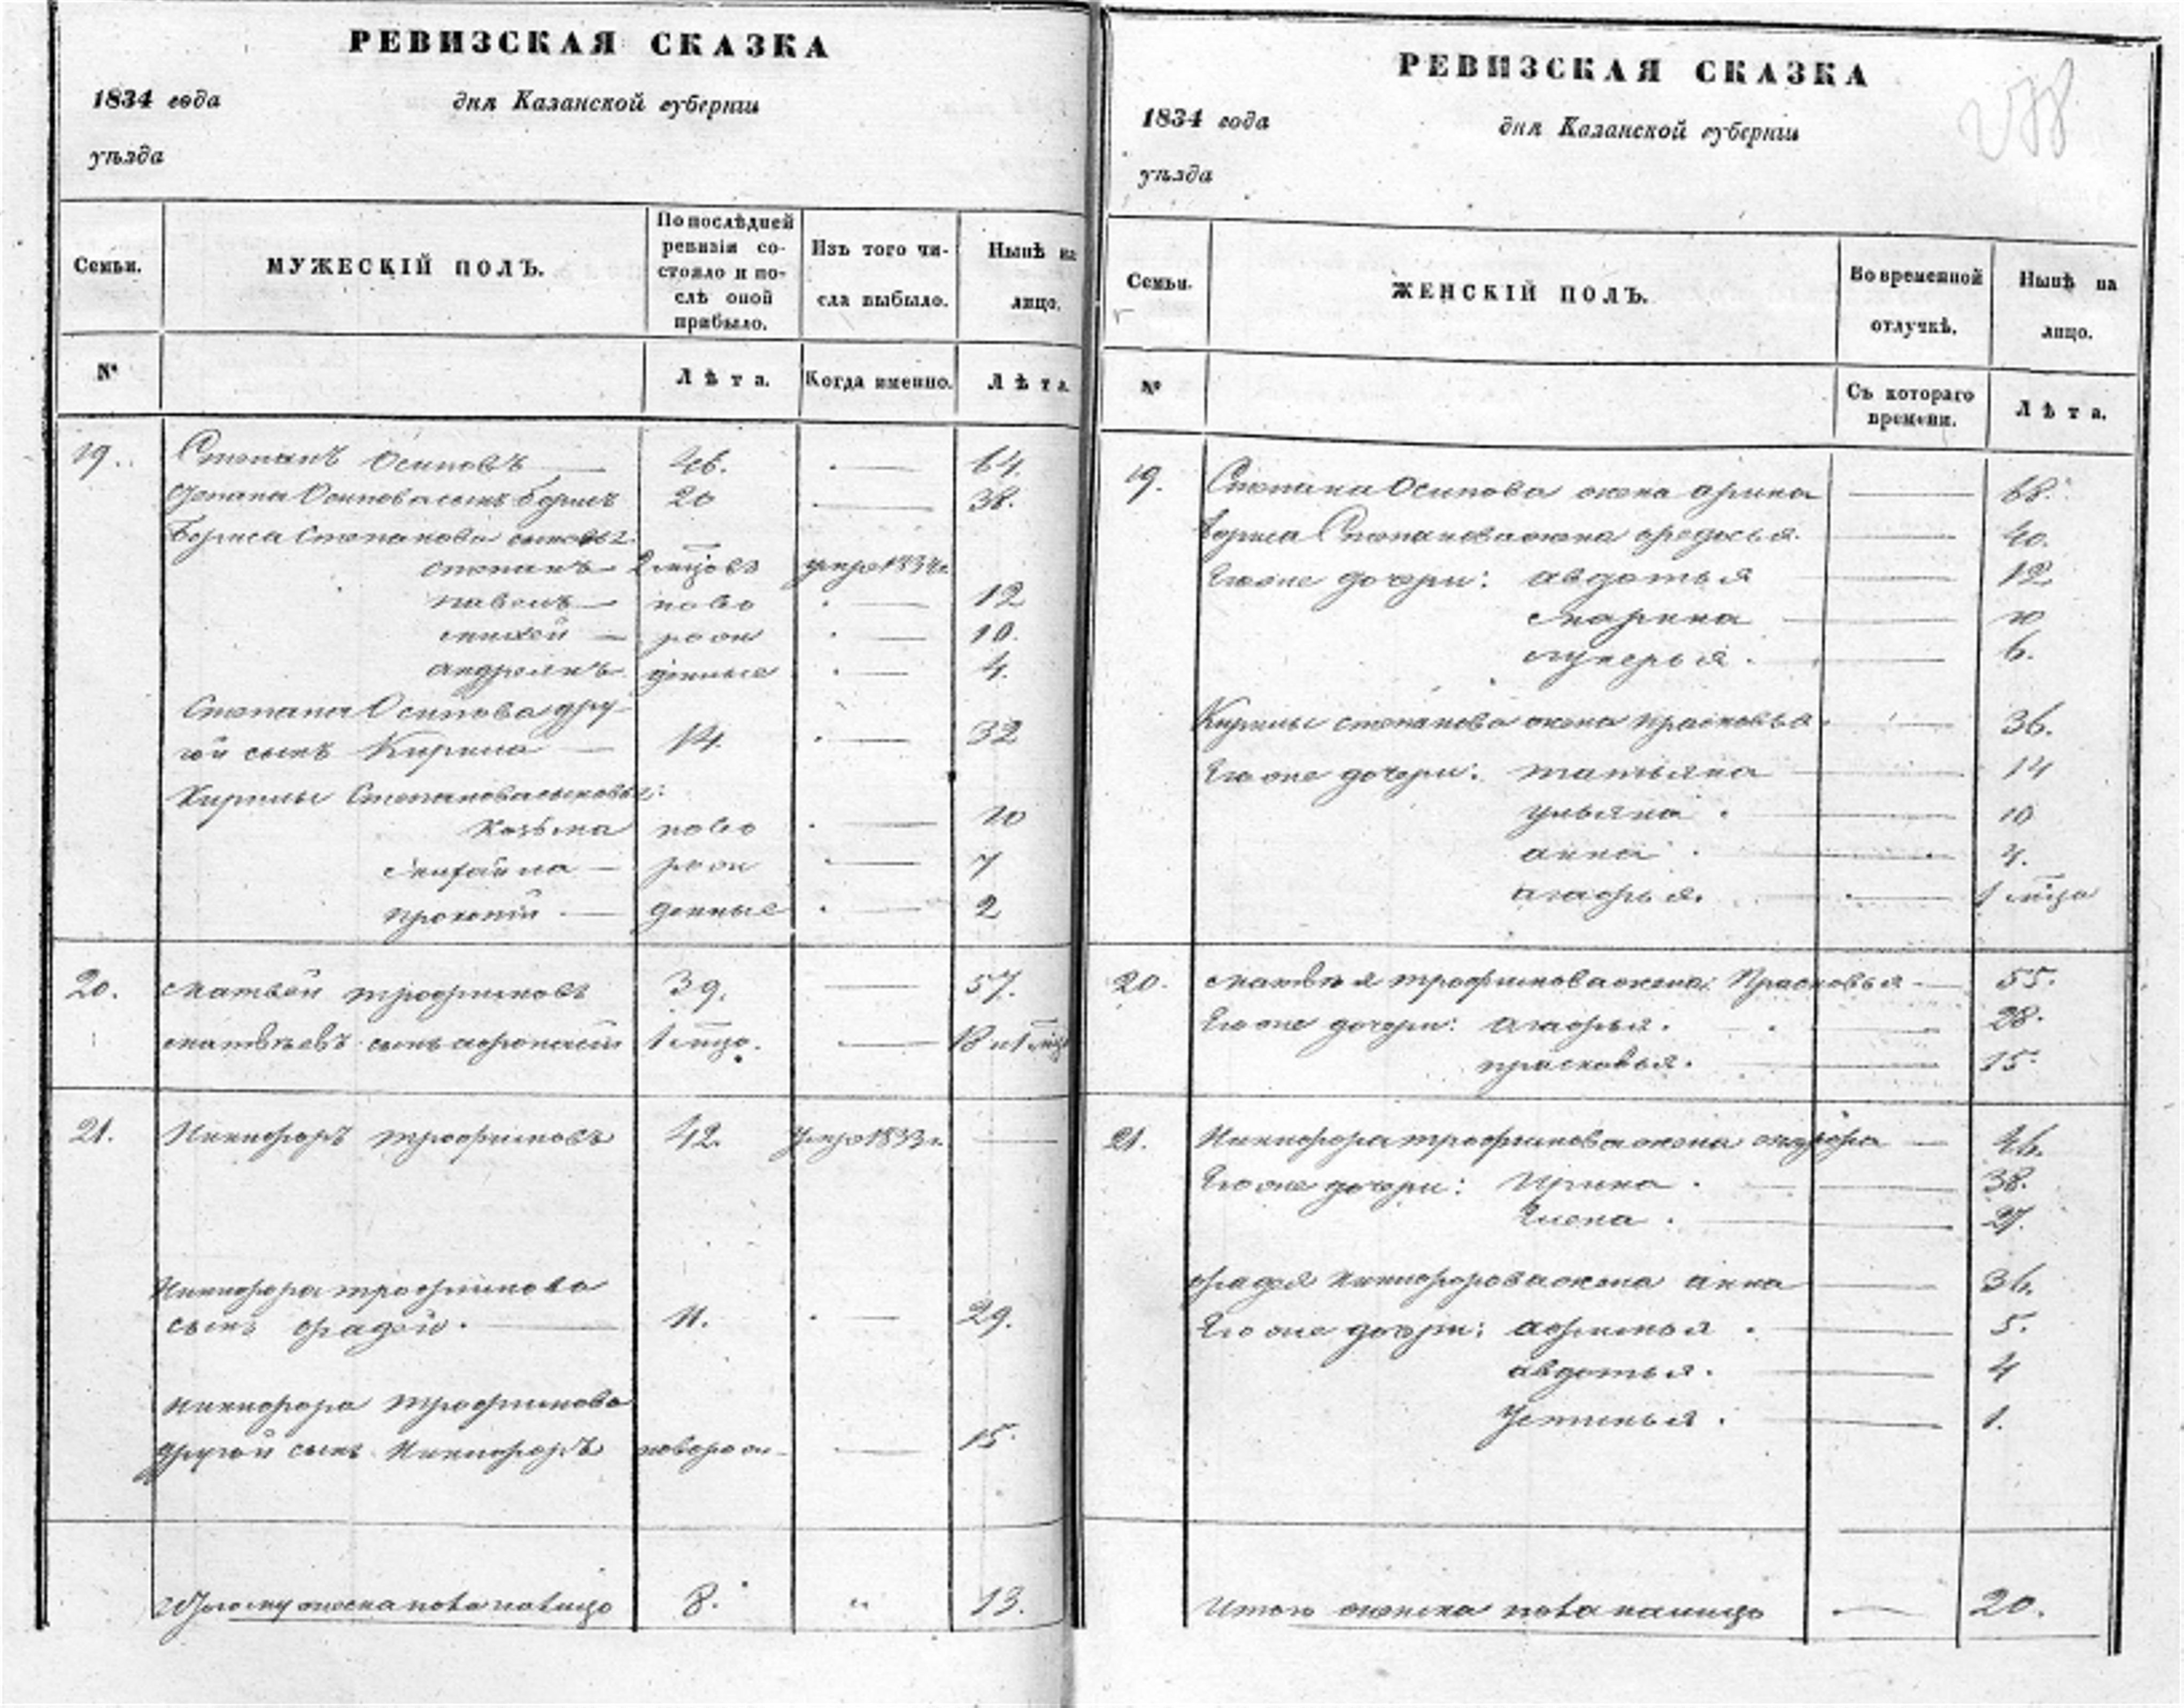 РЕВИЗСКАЯ СКАЗКА
1834 года дня Казанской губерніи
уѣзда
Семьи.
МУЖЕСКІЙ ПОЛЪ.
По послѣдней ревизіи состояло и послѣ оной прибыло.
Изъ того числа выбыло.
Нынѣ на лицо.
№
Лѣта.
Когда именно.
Лѣта
19. Степанъ Осиповъ 46. 64.
Степана Осипова сынъ Борисъ 20 38.
Бориса Степанова сыновья
степанъ 2 мцовъ умре 1834 г.
павелъ ново 12
михей рож 10.
андреянъ денные 4.
Степана Осипова дру-
гой сынъ Кирила 14. 32
Кирилы Степанова сыновья:
Козьма ново 10
михайла рож 7
прокопій денные 2
20. матвей трофимовъ 39. 57.
матвѣевъ сынъ афонасій 1 мцо. 18 и 1 мцо
21. Никифоръ трофимовъ 42. умре 1833 г.
Никифора трофимова
сынъ фадей. 11. 29.
никифора трофимова
другой сынъ Никифоръ новорож 15.
Итого мужеска пола налицо 8. 13.
РЕВИЗСКАЯ СКАЗКА
1834 года дня Казанской губерніи
уѣзда
Семьи.
ЖЕНСКІЙ ПОЛЪ.
Во временной отлучкѣ.
Нынѣ на лицо.
№
Съ котораго времени.
Лѣта.
19. Степана Осипова жена арина 68.
Бориса Степанова жена федосья. 40.
Его же дочери: авдотья 12
марина 10
лукерья. 6.
Кирилы степанова жена прасковья. 36.
Его же дочери: татьяна 14
ульяна. 10
анна. 4.
агафья. 1 мцо
20. матвѣя трофимова жена Прасковья 55.
Его же дочери: агафья. 28.
прасковья. 15.
21. Никифора трофимова жена 46.
Его же дочери: Ирина. 38.
Елена. 27.
фадея никифорова жена анна 36.
Его же дочери: афимья. 5.
авдотья. 4
Устинья. 1.
Итого женска пола налицо 20.